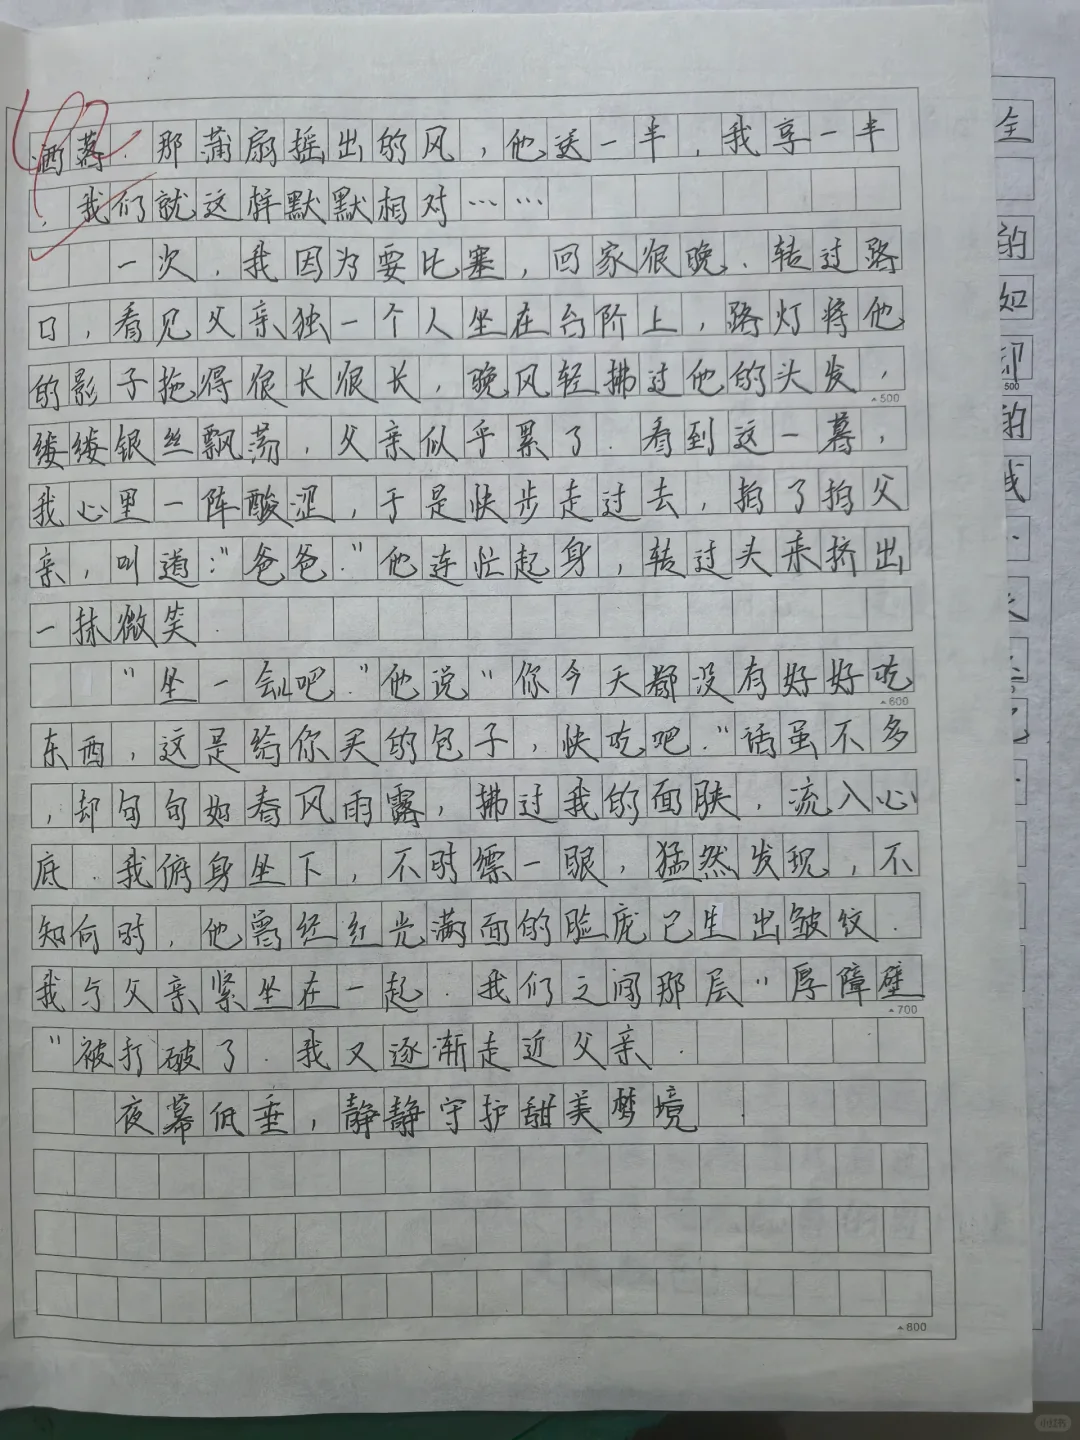 洒落.那蒲扇摇出的风,他送一半,我享一半
.我们就这样默默相对……
一次,我因为要比塞,回家很晚.转过路
口,看见父亲独一个人坐在台阶上,路灯将他
的影子拖得很长很长,晚风轻拂过他的头发,
500
缕缕银丝飘荡,父亲似乎累了.看到这一幕,
我心里一阵酸涩,于是快步走过去,拍了拍父
亲,叫道:"爸爸."他连忙起身,转过头来挤出
一抹微笑.
"坐一会儿吧."他说"你今天都没有好好吃
600
东西,这是给你买的包子,快吃吧."话虽不多
,却句句如春风雨露,拂过我的面颊,流入心
底.我俯身坐下,不时缥一眼,猛然发现,不
知何时,他曾经红光满面的脸庞已生出皱纹.
我与父亲紧坐在一起.我们之间那层"厚障壁
700
"被打破了.我又逐渐走近父亲.
夜幕低垂,静静守护甜美梦境.
800
全
的
如
却
500
的
我
小红书